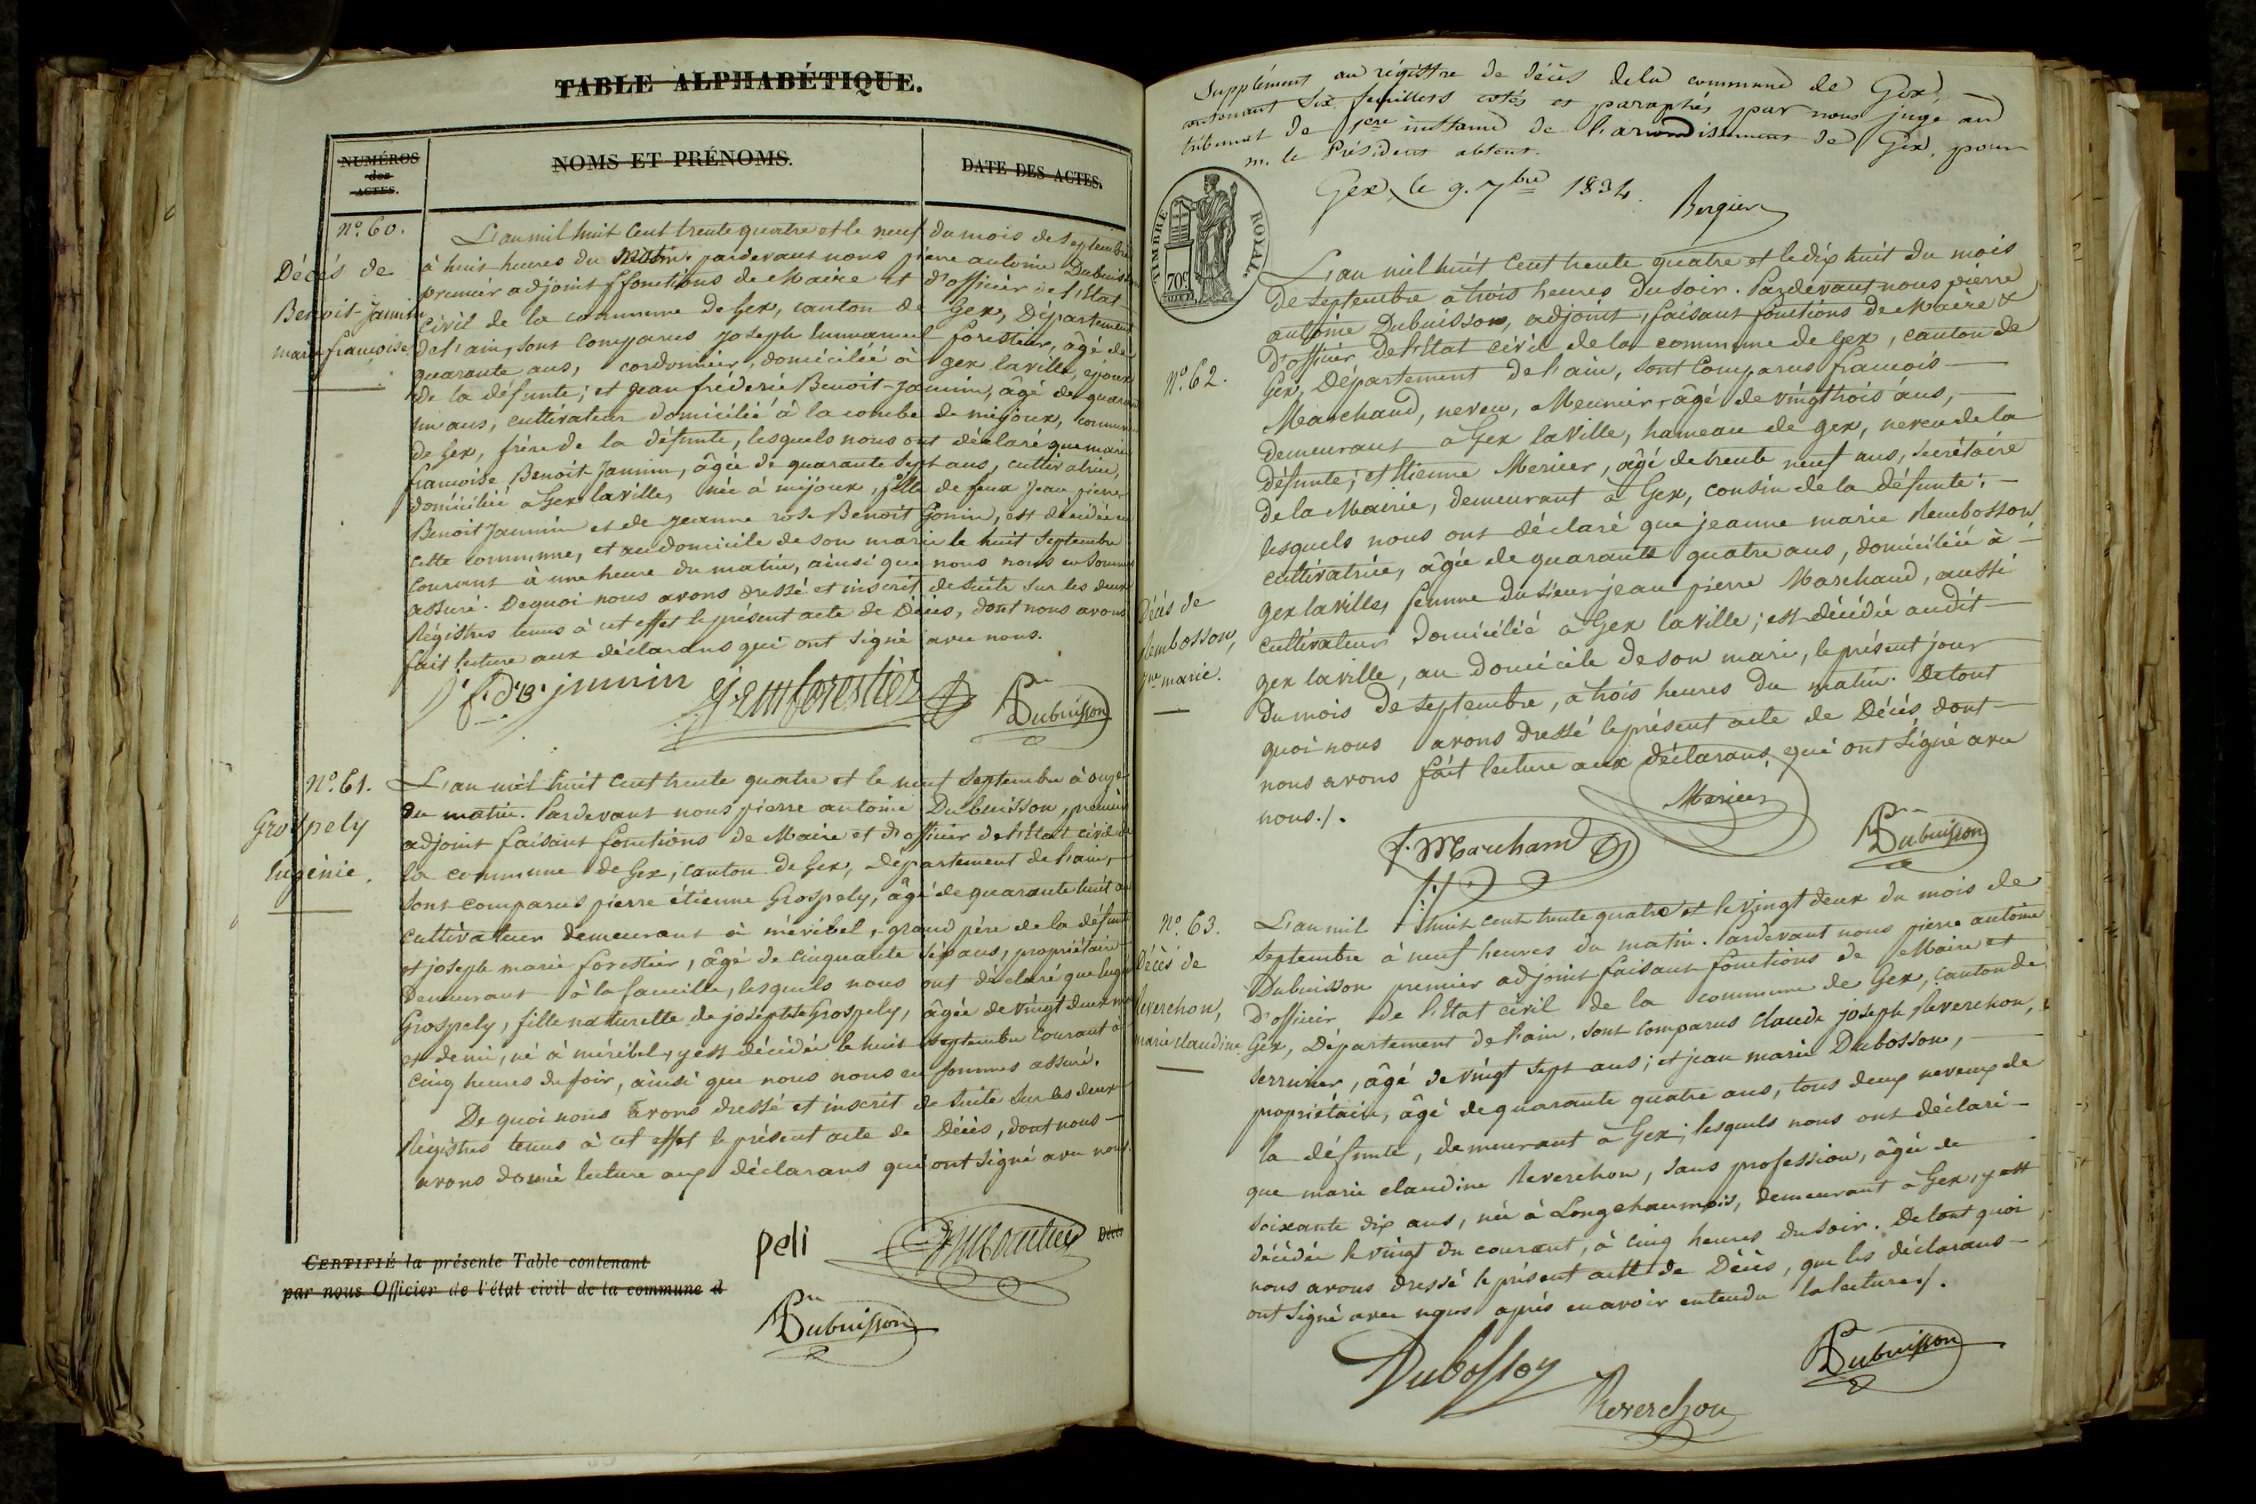 TABLE ALPHABÉTIQUE.
NUMÉROS
des
ACTES.
NOMS ET PRÉNOMS.
DATE DES ACTES.
N.º 60.
Décès de
Benoit-Jannin
marie françoise
L'an mil huit cent trente quatre et le neuf du mois de septembre
à huit heures du matin. pardevant nous pierre antoine Dubuisson
premier adjoint ffonctions de Maire et d'officier de l'Etat
Civil de la commune de Gex, canton de Gex, Département
de l'ain, sont comparus joseph Emmanuel forestier, âgé de
quarante ans, cordonnier, domicilié à gex laville, époux
de la défunte; et jean fréderic Benoit-Jannin, âgé de quarante
un ans, cultivateur domicilié à la combe de mijoux, commune
de Gex, frère de la défunte, lesquels nous ont déclaré que marie
françoise Benoit-Jannin, âgée de quarante sept ans, cultivatrice,
domiciliée à Gex laville, née à mijoux, fille de feux Jean pierre
Benoit Jannin et de jeanne rose Benoit Gonin, est décédée en
cette commune, et au domicile de son mari le huit septembre
courant à une heure du matin, ainsi que nous nous en sommes
assuré. De quoi nous avons dressé et inscrit de suite sur les deux
Régistres tenus à cet effet le présent acte de Décès, dont nous avons
fait lecture aux déclarans qui ont signé avec nous.
j. f. d. B. jannin
j. em forestier
Dubuisson
N.º 61.
Grospely
Eugénie.
L'an mil huit cent trente quatre et le neuf septembre à onze
du matin. Pardevant nous pierre antoine Dubuisson, premier
adjoint faisant fonctions de Maire et d'officier de l'Etat civil de
la commune de Gex, canton de Gex, Département de l'ain,
sont comparus pierre étienne Grospely, âgé de quarante huit ans
cultivateur demeurant à méribel, grand père de la défunte
et joseph marie forestier, âgé de cinquante sept ans, propriétaire
demeurant à la faucille, lesquels nous ont déclaré que Eugénie
Grospely, fille naturelle de josephte Grospely, âgée de vingt deux mois
et demi, né à méribel, y est décédée le huit septembre courant à
cinq heures du soir, ainsi que nous nous en sommes assuré.
De quoi nous avons dressé et inscrit de suite sur les deux
Régistres tenus à cet effet le présent acte de Décès, dont nous
avons donné lecture aux déclarans qui ont signé avec nous.
peli
Décès
CERTIFIÉ la présente Table contenant
par nous Officier de l'état civil de la commune d
Dubuisson
Supplément au régistre de décès de la commune de Gex,
contenant six feuillets cotés et paraphés par nous juge au
tribunal de 1ere instance de l'arrondissement de Gex, pour
m. le Président absent.
Gex, le 9. 7bre 1834.
Bergier
TIMBRE ROYAL.
70c
N.º 62.
Décès de
Rembosson,
jne marie.
L'an mil huit cent trente quatre et le dix huit du mois
de septembre à trois heures du soir. Pardevant nous pierre
antoine Dubuisson, adjoint, faisant fonctions de Maire &
d'officier de l'Etat civil de la commune de Gex, canton de
Gex, Département de l'ain, sont comparus françois
Marchand, neveu, Meunier, âgé de vingt trois ans,
demeurant à Gex la Ville, hameau de gex, neveu de la
défunte; et Etienne Mercier, âgé de trente neuf ans, secrétaire
de la Mairie, demeurant à Gex, cousin de la défunte;
lesquels nous ont déclaré que jeanne marie Rembosson
cultivatrice, âgée de quarante quatre ans, domiciliée à
gex laville, femme du sieur jean pierre Marchand, aussi
cultivateur domicilié à Gex la ville; est décédée audit
gex la ville, au domicile de son mari, le présent jour
du mois de septembre, à trois heures du matin. De tout
quoi nous avons dressé le présent acte de Décès dont
nous avons fait lecture aux déclarans, qui ont signé avec
nous./.
Mercier
f. Marchand
Dubuisson
N.º 63.
Décès de
Reverchon,
marie Claudine.
L'an mil huit cent trente quatre et le vingt deux du mois de
septembre à neuf heures du matin. Pardevant nous pierre antoine
Dubuisson premier adjoint faisant fonctions de Maire et
d'officier de l'Etat civil de la commune de Gex, canton de
Gex, Département de l'ain, sont comparus Claude joseph Reverchon,
serrurier, âgé de vingt sept ans; et jean marie Dubosson,
propriétaire, âgé de quarante quatre ans, tous deux neveux de
la défunte, demeurant à Gex; lesquels nous ont déclaré
que marie claudine Reverchon, sans profession, âgée de
soixante dix ans, née à Longchaumois, demeurant à Gex, y est
décédée le vingt du courant, à cinq heures du soir. De tout quoi
nous avons dressé le présent acte de Décès, que les déclarans
ont signé avec nous après en avoir entendu la lecture./.
Dubosson
Reverchon
Dubuisson